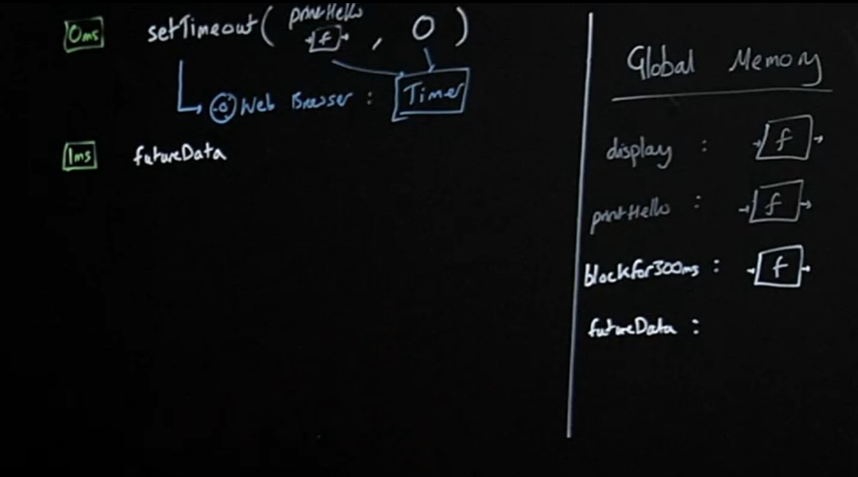 0ms setTimeout( printHello f , 0 )
Web Browser : Timer
1ms futureData
Global Memory
display : f
printHello : f
blockFor300ms : f
futureData :